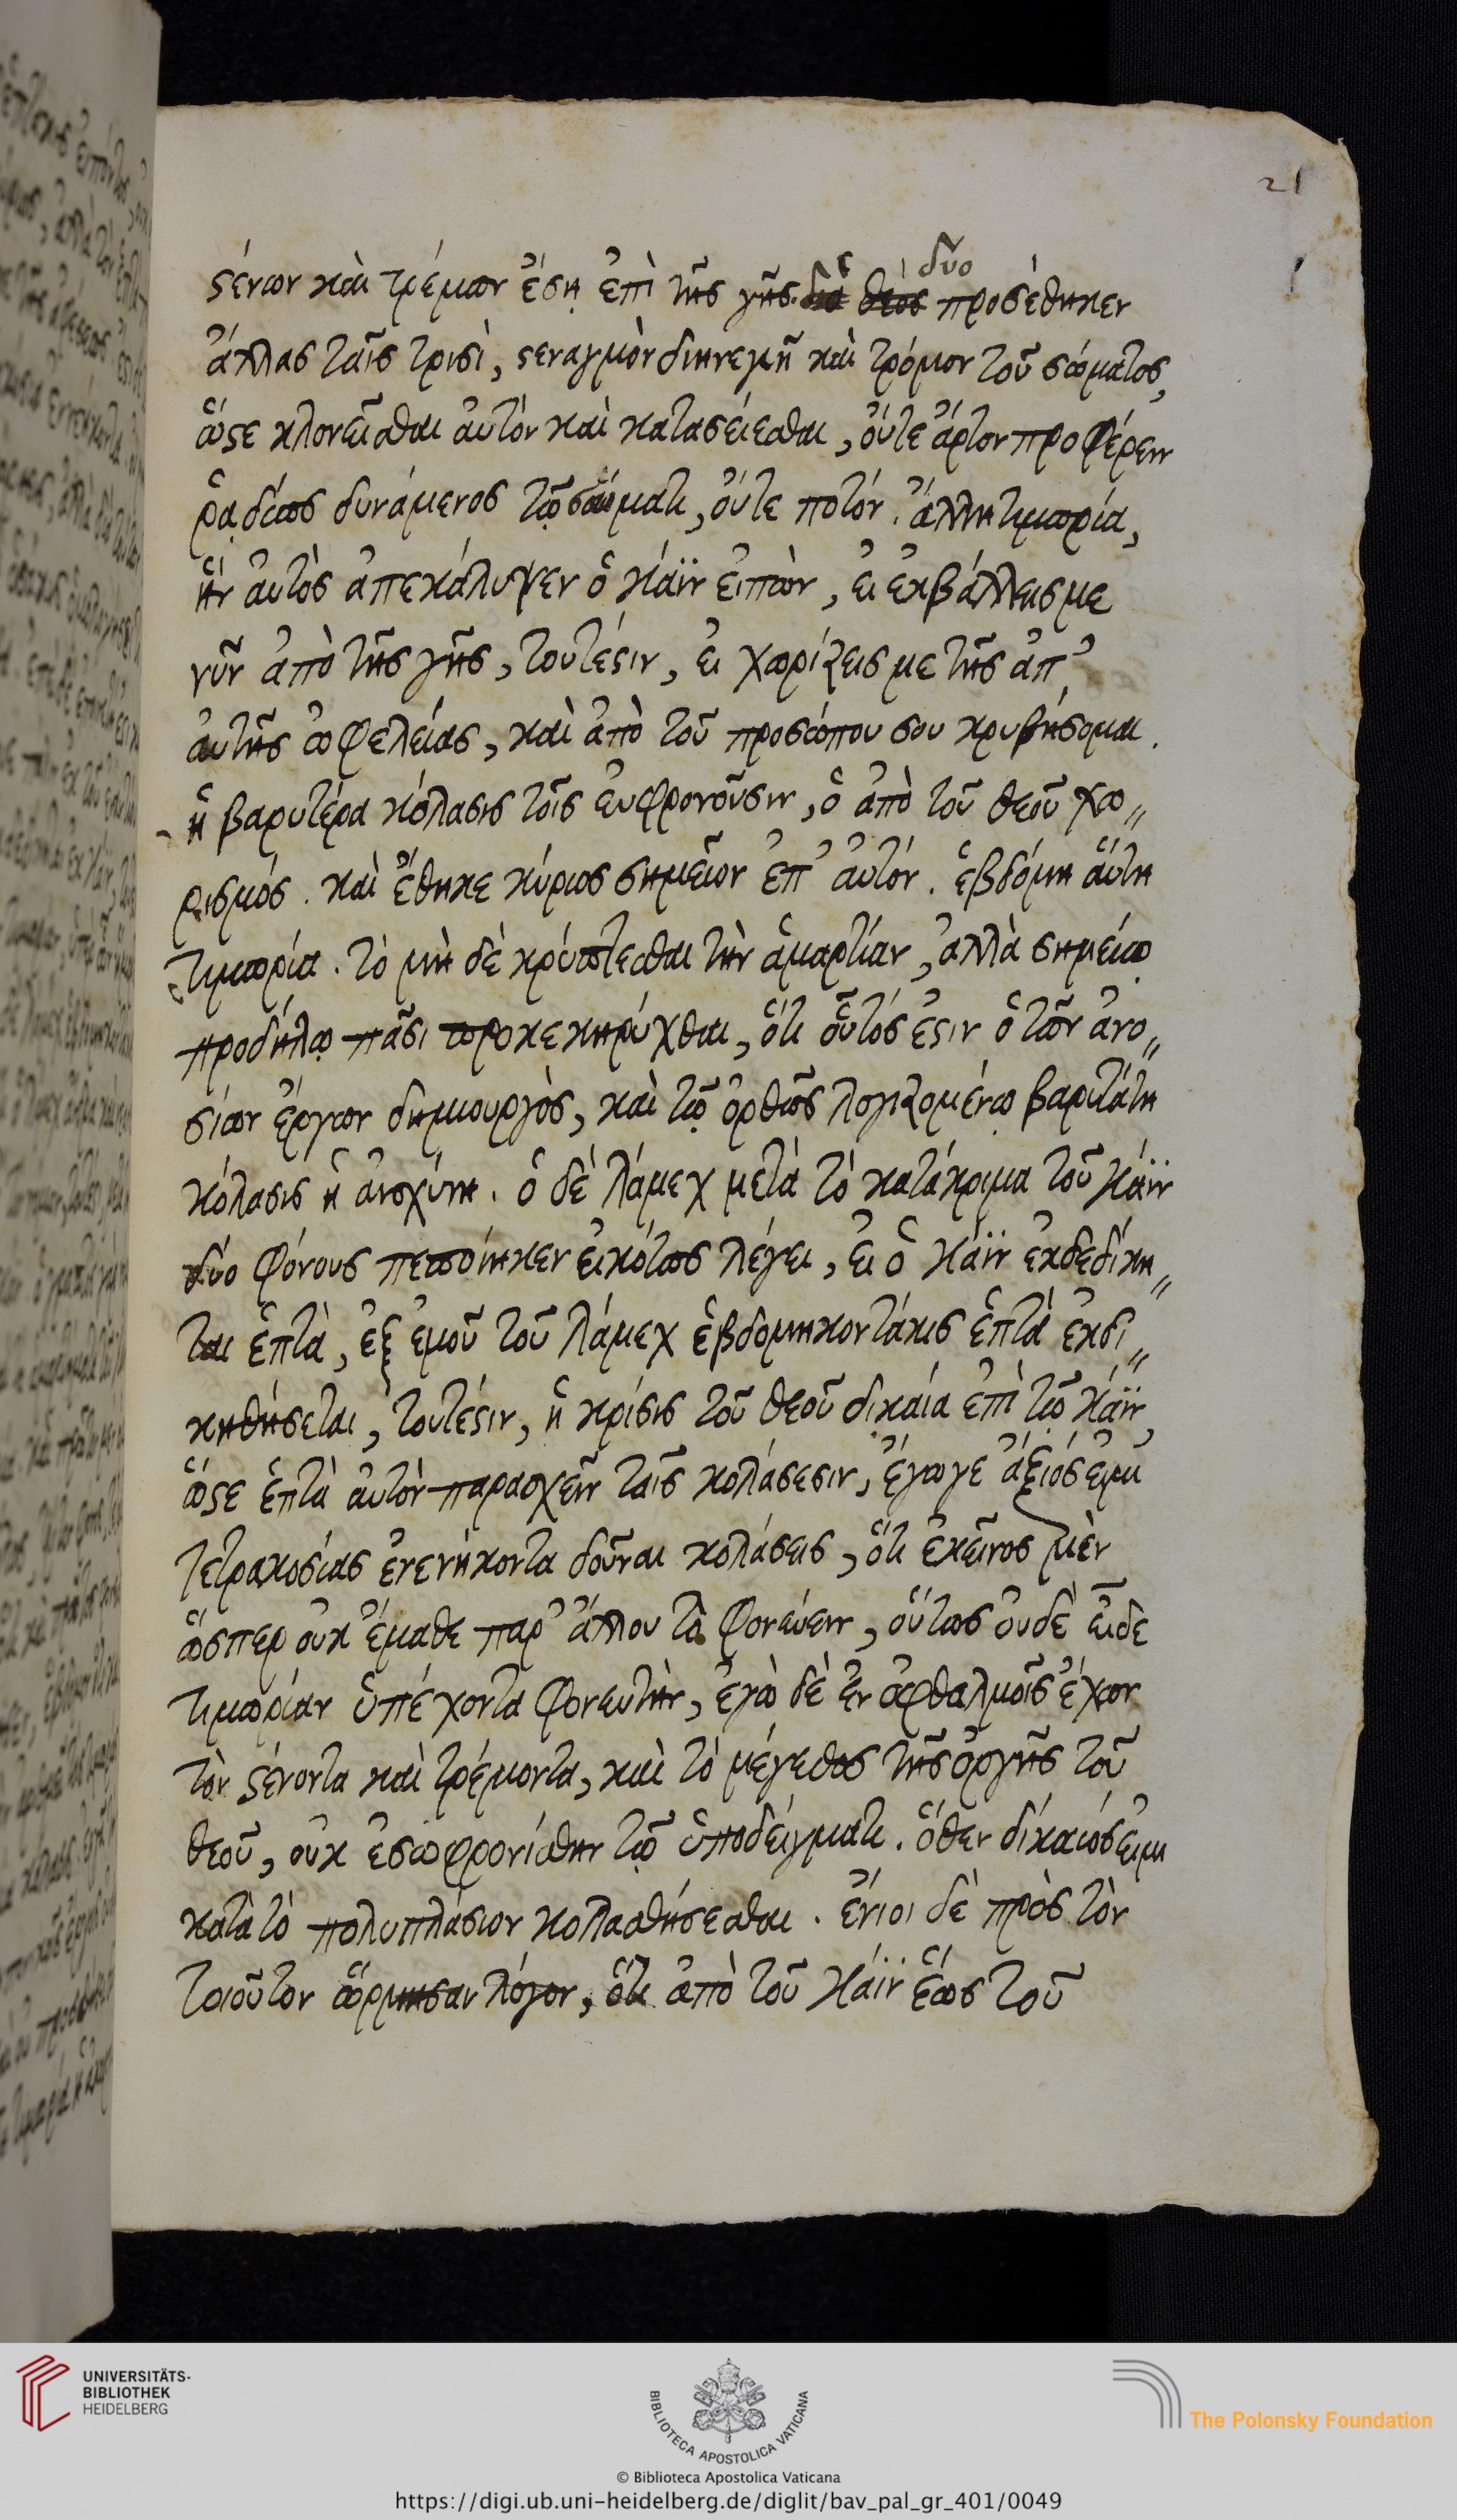 21
δύο
στένων καὶ τρέμων ἔσῃ ἐπὶ τῆς γῆς. διὸ θεὸς προσέθηκεν
ἄλλας ταῖς τρισὶ, στεναγμὸν διηνεκῆ καὶ τρόμον τοῦ σώματος,
ὥστε κλονεῖσθαι αὐτὸν καὶ κατασείεσθαι, οὔτε ἄρτον προφέρειν
ῥᾳδίως δυνάμενος τῷ σώματι, οὔτε ποτόν. ἄλλη τιμωρία,
ἣν αὐτὸς ἀπεκάλυψεν ὁ κάϊν εἰπὼν, εἰ ἐκβάλλεις με
νῦν ἀπὸ τῆς γῆς, τουτέστιν, εἰ χωρίζεις με τῆς ἀπ'
αὐτῆς ὠφελείας, καὶ ἀπὸ τοῦ προσώπου σου κρυβήσομαι.
ἡ βαρυτέρα κόλασις τοῖς εὐφρονοῦσιν, ὁ ἀπὸ τοῦ θεοῦ χω〃
ρισμός. καὶ ἔθηκε κύριος σημεῖον ἐπ' αὐτόν. ἑβδόμη αὕτη
τιμωρία. τὸ μὴ δὲ κρύπτεσθαι τὴν ἁμαρτίαν, ἀλλὰ σημείῳ
προδήλῳ πᾶσι προκεκηρύχθαι, ὅτι οὗτός ἐστιν ὁ τῶν ἀνο〃
σίων ἔργων δημιουργὸς, καὶ τῷ ὀρθῶς λογιζομένῳ βαρυτάτη
κόλασις ἡ αἰσχύνη. ὁ δὲ λάμεχ μετὰ τὸ κατάκριμα τοῦ κάϊν
δύο φόνους πεποίηκεν εἰκότως λέγει, εἰ ὁ κάϊν ἐκδεδίκη〃
ται ἑπτὰ, ἐξ ἐμοῦ τοῦ λάμεχ ἑβδομηκοντάκις ἑπτὰ ἐκδι〃
κηθήσεται, τουτέστιν, ἡ κρίσις τοῦ θεοῦ δικαία ἐπὶ τῷ κάϊν,
ὥστε ἑπτὰ αὐτὸν παρασχεῖν ταῖς κολάσεσιν, ἔγωγε ἄξιός εἰμι
τετρακοσίας ἐνενήκοντα δοῦναι κολάσεις, ὅτι ἐκεῖνος μὲν
ὥσπερ οὐκ ἔμαθε παρ' ἄλλου τὸ φονεύειν, οὕτως οὐδὲ εἶδε
τιμωρίαν ὑπέχοντα φονευτὴν, ἐγὼ δὲ ἐν ὀφθαλμοῖς ἔχων
τὸν στένοντα καὶ τρέμοντα, καὶ τὸ μέγεθος τῆς ὀργῆς τοῦ
θεοῦ, οὐκ ἐσωφρονίσθην τῷ ὑποδείγματι. ὅθεν δίκαιός εἰμι
κατὰ τὸ πολυπλάσιον κολασθήσεσθαι. ἔνιοι δὲ πρὸς τὸν
τοιοῦτον ὥρμησαν λόγον, ὅτι ἀπὸ τοῦ κάϊν ἕως τοῦ
UNIVERSITÄTS-
BIBLIOTHEK
HEIDELBERG
BIBLIOTECA APOSTOLICA VATICANA
The Polonsky Foundation
© Biblioteca Apostolica Vaticana
https://digi.ub.uni-heidelberg.de/diglit/bav_pal_gr_401/0049